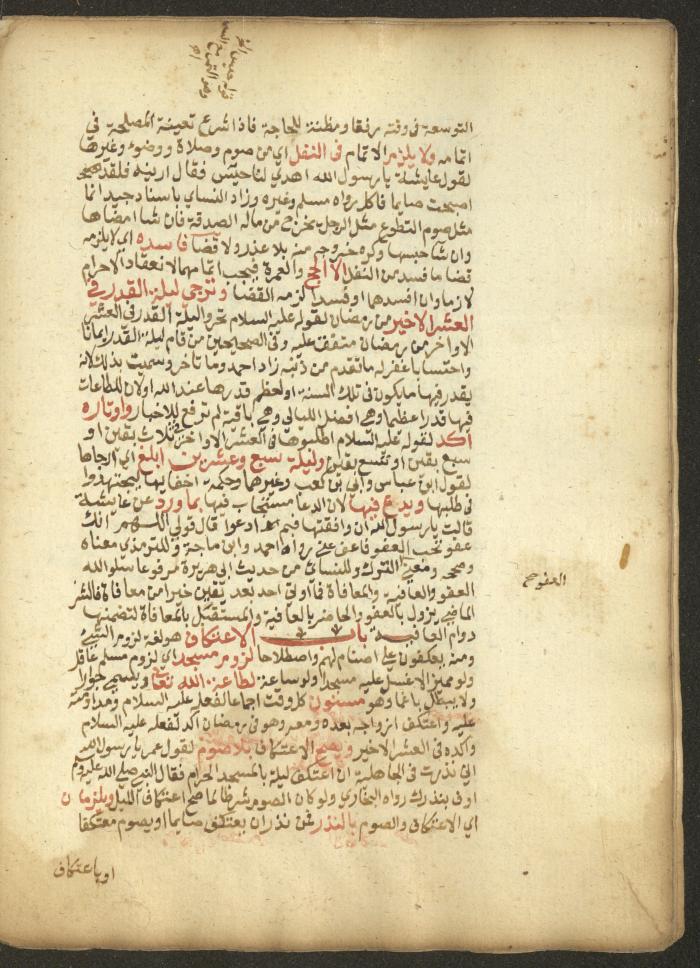 قوله حيس
وهو التمر مع السمن
التوسعة في وقته رفقا ومظنة للحاجة فاذا شرع تعينة المصلحة في
اتمامه ولا يلزم الاتمام في النفل اي من صوم وصلاة ووضوء وغيرها
لقول عايشة يا رسول الله اهدي لنا حيس فقال ارنيه فلقد
اصبحت صايما فاكل رواه مسلم وغيره وزاد النساي باسناد جيد انما
مثل صوم التطوع مثل الرجل يخرج من ماله الصدقة فان شا امضاها
وان شا حبسها وكره خروجه منه بلا عذر ولا قضا فاسده اي لا يلزمه
قضا ما فسد من النفل الا الحج والعمرة فيجب اتمامهما لانعقاد الاحرام
لازما وان افسدهما او فسدا لزمه القضا وترجى ليلة القدر في
العشر الاخير من رمضان لقوله عليه السلام تحروا ليلة القدر في العشر
الاواخر من رمضان متفق عليه وفي الصحيحين من قام ليلة القدر ايمانا
واحتسابا غفر له ما تقدم من ذنبه زاد احمد وما تاخر وسميت بذلك لانه
يقدر فيها ما يكون في تلك السنة او لعظم قدرها عند الله او لان للطاعات
فيها قدرا عظيما وهي افضل الليالي وهي باقية لم ترفع للاخبار واوتاره
آكد لقوله عليه السلام اطلبوها في العشر الاواخر لثلاث بقين او
سبع بقين او تسع بقين وليلة سبع وعشرين ابلغ اي ارجاها
لقول ابن عباس وابي بن كعب وغيرهما وحكمة اخفايها ليجتهدوا
في طلبها ويدعو فيها لان الدعا مستجاب فيها بما ورد عن عايشة
قالت يا رسول الله ان وافقتها فبم ادعوا قال قولي اللهم انك
عفو تحب العفو فاعف عني رواه احمد وابن ماجة وللترمذي معناه
وصححه ومعنى العفو الترك وللنساي من حديث ابي هريرة مرفوعا سلوا الله
العفو والعافية والمعافاة فما اوتي احد بعد يقين خيرا من معافاة فالشر
الماضي يزول بالعفو والحاضر بالعافية والمستقبل بالمعافاة لتضمنها
دوام العافية باب الاعتكاف هو لغة لزوم الشي
ومنه يعكفون على اصنام لهم واصطلاحا لزوم مسجد اي لزوم مسلم عاقل
ولو مميز لا غسل عليه مسجدا ولو ساعة لطاعة الله تعا ويسمى جوارا
ولا يبطل باغما وهو مسنون كل وقت اجماعا لفعله عليه السلام ومداومته
عليه واعتكف ازواجه بعده ومعه وهو في رمضان آكد لفعله عليه السلام
وآكده في العشر الاخير ويصح الاعتكاف بلا صوم لقول عمر يا رسول الله
اني نذرت في الجاهلية ان اعتكف ليلة بالمسجد الحرام فقال النبي صلى الله عليه وسلم
اوف بنذرك رواه البخاري ولو كان الصوم شرطا لما صح اعتكاف الليل ويلزمان
اي الاعتكاف والصوم بالنذر فمن نذر ان يعتكف صايما او يصوم معتكفا
او باعتكاف
العفو صح